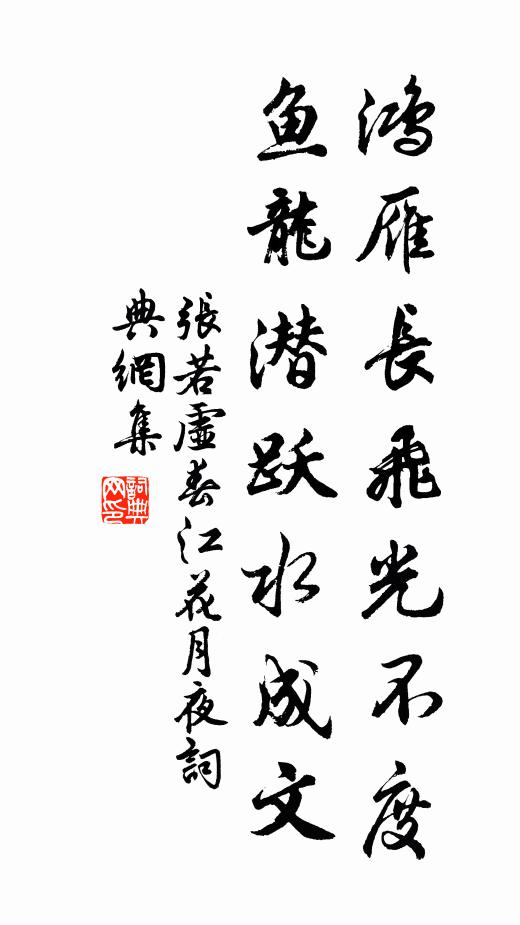 鸿雁長飛光不度
鱼龍潜跃水成文
張若虛春江花月夜詞
典網集
詞典网印